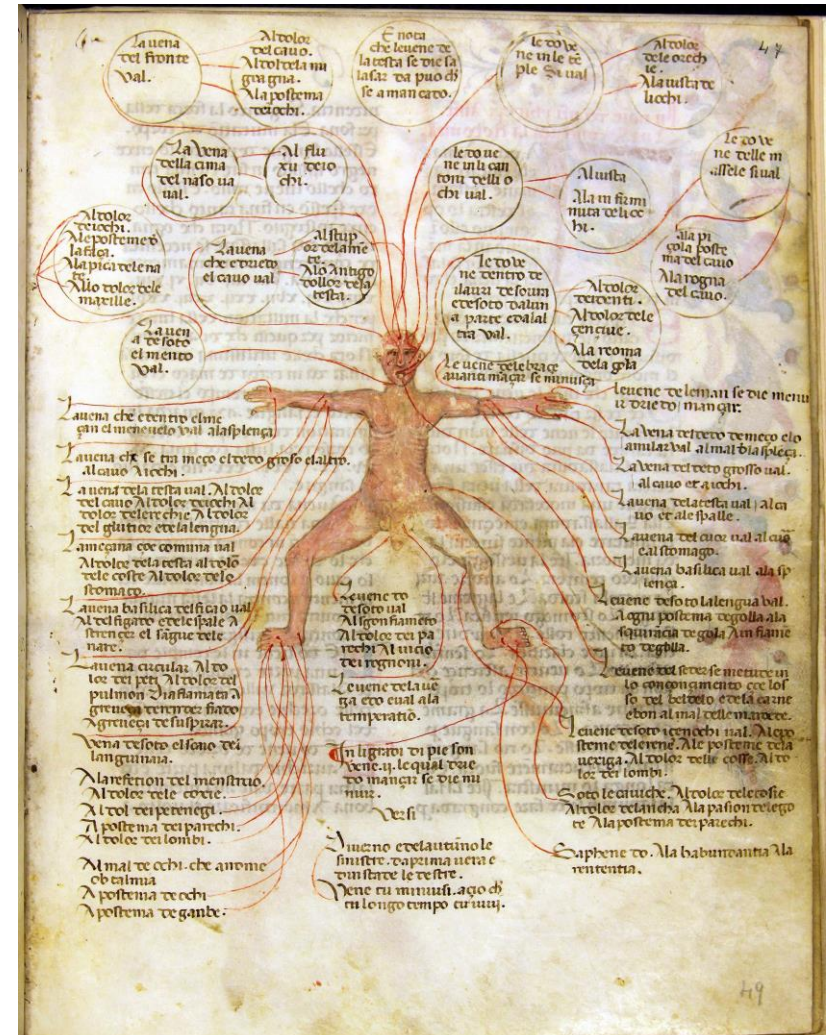 47
La uena
del fronte
val.
Al dolor
del cauo.
Al dol dela mi
gragna.
A la postema
de iochi.
E nota
che le uene de
la testa se die sa
lasar da puo ch
se a mancato.
le do ve
ne in le te
ple si ual
Al dolor
dele orech
ie.
A la uista de
li ochi.
La vena
della cima
del naso ua
val.
Al flu
xu de io
chi.
le do ue
ne in li can
toni delli o
chi ual.
Al uista
A la infirmi
mita deli oc
hi.
le do ve
ne delle m
assele si ual
Al dolor
de iochi.
A le posteme d
la faça.
A la piça dele na
te.
A lio dolor dele
maxille.
La uena
che e drieto
el cauo ual
Al stup
or dela me
te.
A lo antigo
dollor dela
testa.
le do ve
ne dentro de
i laurj desoura
e de soto da lun
a parte e da lal
tra val.
Al dolor
de denti.
Al dolor dele
gengiue.
A la reoma
dela gola
A la pi
çola poste
ma del cauo
A la rogna
del cauo.
La uen
a de soto
el mento
val.
Le uene dele braçe
auanti maçar se minuisca
le uene de le man se die menu
ir drie do mançar.
La uena che e dentro el me
çan el meneuelo val a la splença
La uena che se tra meço el dedo groso e laltro.
al cauo A i ochi.
La uena dela testa val. Al dolor
del cauo Al dolor de iochi Al
dolor dele rechie Al dolor
del glutior e dela lengua.
La meçana çoe comuna ual
Al dolor dela testa al dolor
dele coste Al dolor delo
stomaco.
La uena basilica del ficao ual
Al del figato e dele spale A
strençer el sague dele
nare.
La uena cucular Al do
lor dei peti Al dolor del
pulmon
de suspirar.
Vena de soto el scaio dei
languinaia.
A la retention del menstruo.
Al dolor dele coxie.
Al dol dei petenegi.
A postema dei parechi.
Al dolor dei lombi.
Al mal de ochi. che a nome
obtalmia
A postema de ochi
A postema de ganbe.
Le uene do
de soto ual
Al sgonfiameto
Al dolor dei pa
rechi Al uicio
dei regnoni.
Le uene dela ue
ga e do e ual a la
temperatio.
In li gradi di pie son
vene .ij. le qual drie
do mançar se die mi
nuir.
Versi
Inuerno e delautũno le
sinistre. da prima uera e
dinstade le destre.
Vene tu minuisi. açio ch
tu longo tempo tu uiuj.
La Vena del dedo de meço e lo
anular val al mal dia spleça.
La Vena del deto grosso val.
al cauo et a iochi.
La uena dela testa ual al ca
uo et ale spalle.
La uena del cuor ual al cuor
e al stomago.
La uena basilica ual ala sp
lença.
Le uene de soto la lengua val.
A ogni postema de golla a la
squinacia de gola A infiame
to de golla.
Le uene del seder se metude in
lo conçongimento çoe los
so del beldelo e dela carne
e bon al mal delle marode.
Le uene de soto i çenochi val. A le po
steme dele rene. A le posteme dela
uexiga. Al dolor delle cosse. Al do
lor dei lombi.
Soto le cauiche. Al dolor dele cosie
Al dolor de lancha A la pasion delego
te A la postema dei parechi.
Saphene do. A la habundantia A la
rententia.
49